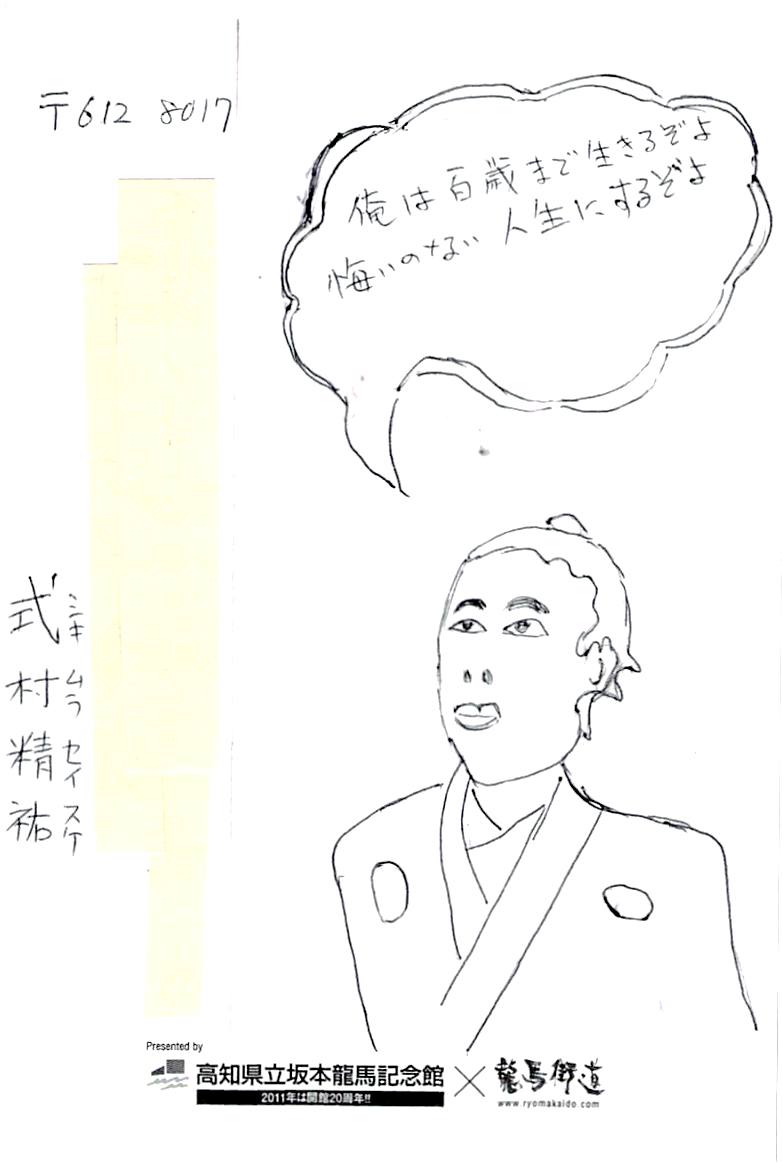 〒612 8017
俺は百歳まで生きるぞよ
悔いのない人生にするぞよ
式村精祐
シキムラセイスケ
Presented by
高知県立坂本龍馬記念館×龍馬街道
2011年は開館20周年!!
www.ryomakaido.com